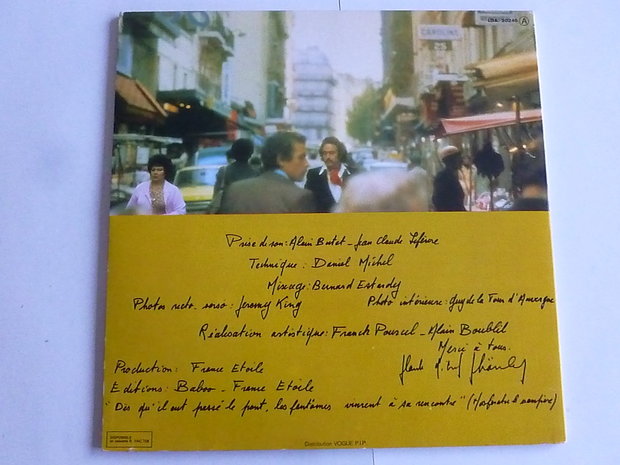 LDA. 20240 Ⓐ
CAROLINE
25
Prise de son: Alain Butet - Jean Claude Lefèvre
Technique: Daniel Michel
Mixage: Bernard Estardy
Photos recto. verso: Jeremy King Photo intérieure: Guy de la Tour d'Auvergne
Réalisation artistique: Franck Pourcel - Alain Boublil
Merci à tous.
Production: France Etoile
Editions: Baboo - France Etoile
"Dès qu'il eut passé le pont, les fantômes vinrent à sa rencontre" (Nosferatu le vampire)
DISPONIBLE
en cassette
Distribution VOGUE P.I.P.